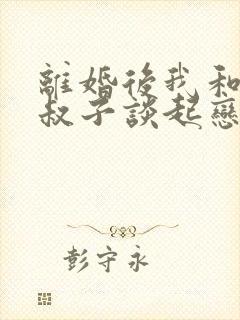 離婚後我和
叔子談起戀
彭守永